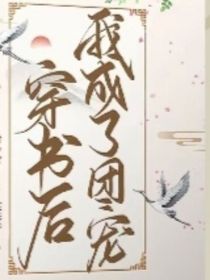 穿书后
我成了团宠